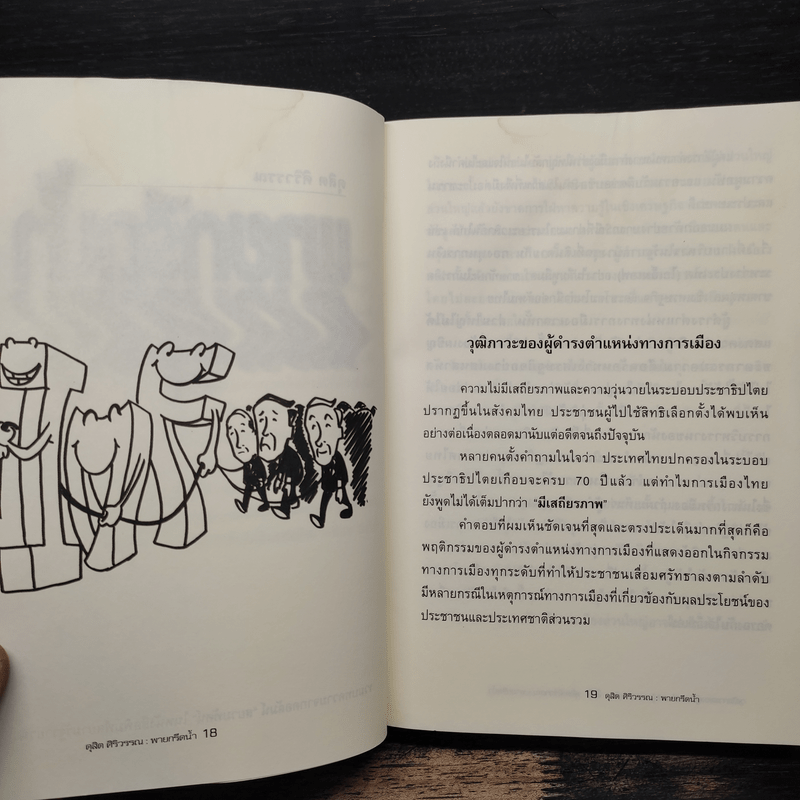 ดุสิต ศิริวรรณ : พายกรีดน้ำ 18
วุฒิภาวะของผู้ดำรงตำแหน่งทางการเมือง
ความไม่มีเสถียรภาพและความวุ่นวายในระบอบประชาธิปไตย
ปรากฏขึ้นในสังคมไทย ประชาชนผู้ไปใช้สิทธิเลือกตั้งได้พบเห็น
อย่างต่อเนื่องตลอดมานับแต่อดีตจนถึงปัจจุบัน
หลายคนตั้งคำถามในใจว่า ประเทศไทยปกครองในระบอบ
ประชาธิปไตยเกือบจะครบ 70 ปีแล้ว แต่ทำไมการเมืองไทย
ยังพูดไม่ได้เต็มปากว่า "มีเสถียรภาพ"
คำตอบที่ผมเห็นชัดเจนที่สุดและตรงประเด็นมากที่สุดก็คือ
พฤติกรรมของผู้ดำรงตำแหน่งทางการเมืองที่แสดงออกในกิจกรรม
ทางการเมืองทุกระดับที่ทำให้ประชาชนเสื่อมศรัทธาลงตามลำดับ
มีหลายกรณีในเหตุการณ์ทางการเมืองที่เกี่ยวข้องกับผลประโยชน์ของ
ประชาชนและประเทศชาติส่วนรวม
19 ดุสิต ศิริวรรณ : พายกรีดน้ำ